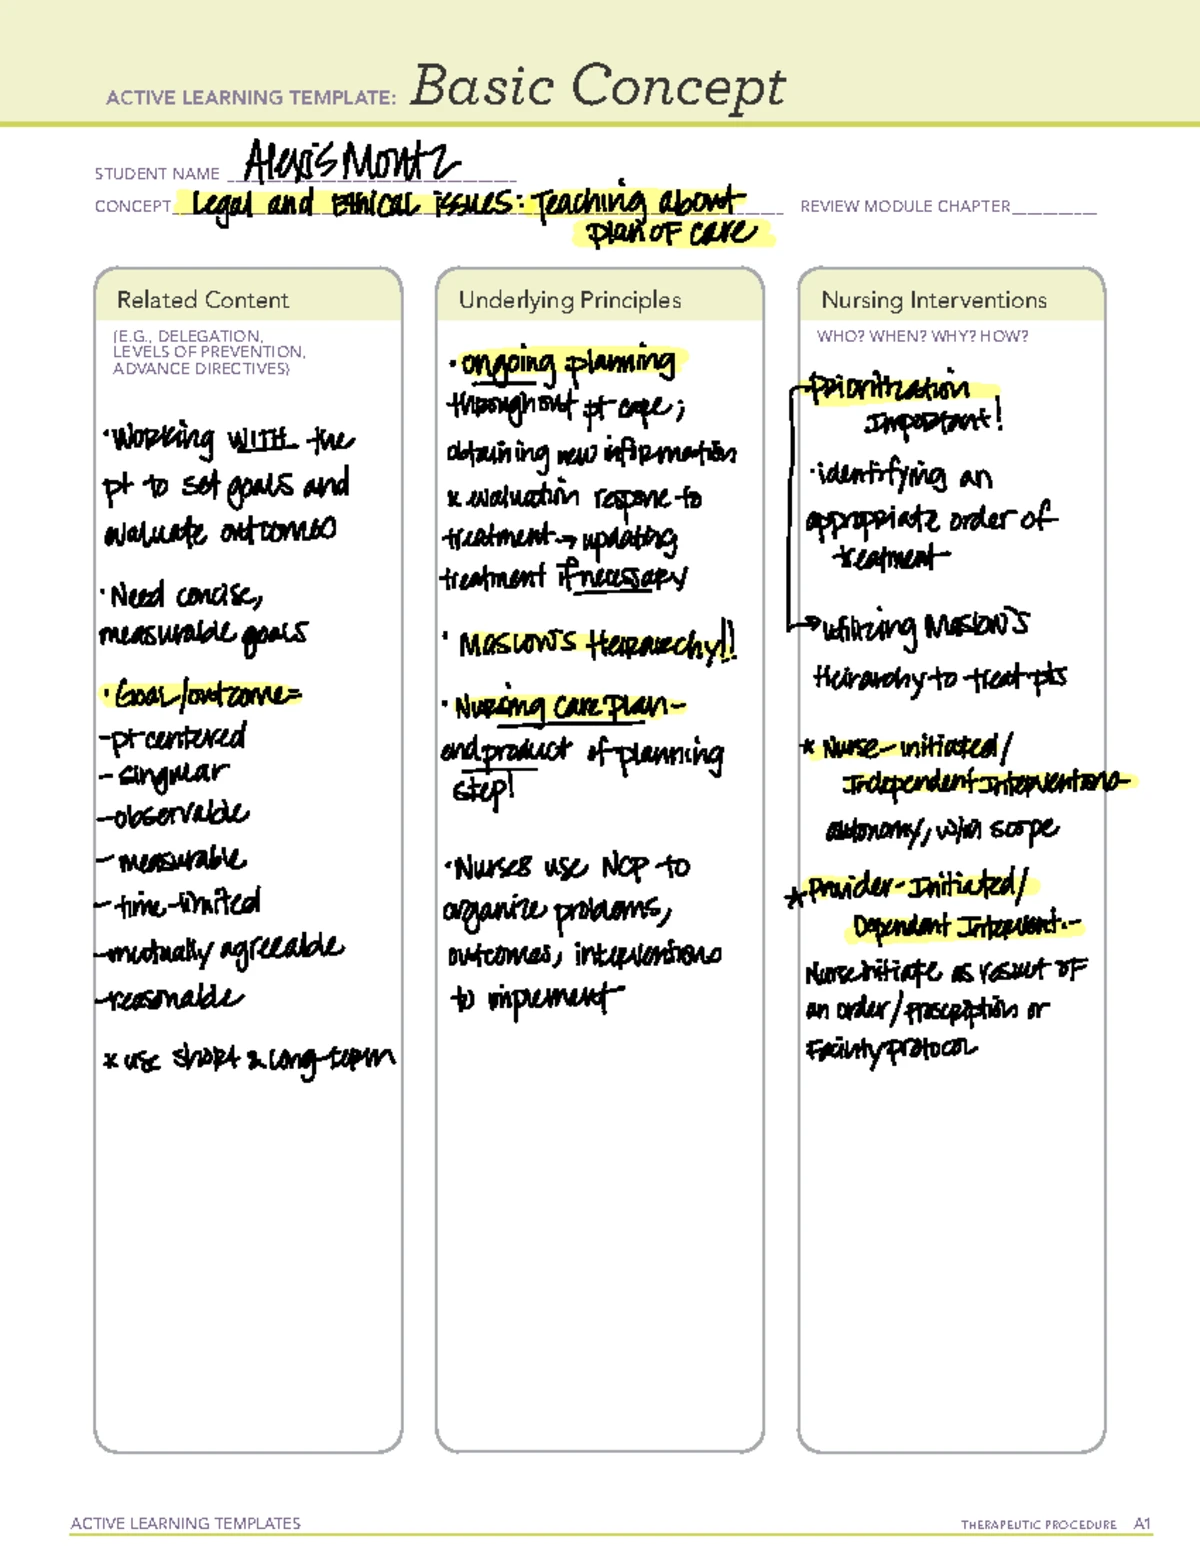 ACTIVE LEARNING TEMPLATE: Basic Concept
STUDENT NAME Alexis Montz
CONCEPT Legal and Ethical issues: Teaching about
plan of care
REVIEW MODULE CHAPTER
Related Content
(E.G., DELEGATION,
LEVELS OF PREVENTION,
ADVANCE DIRECTIVES)
·Working WITH the
pt to set goals and
evaluate outcomes
·Need concise,
measurable goals
·Goal/outcome=
-pt centered
-singular
-observable
-measurable
-time-limited
-mutually agreeable
-reasonable
* use short & long-term
Underlying Principles
·ongoing planning
throughout pt care;
obtaining new information
& evaluation respone to
treatment → updating
treatment if necessary
· Maslow's Heirarchy!!
· Nursing care plan-
end product of planning
step!
·Nurses use NCP to
organize problems,
outcomes, interventions
to implement
Nursing Interventions
WHO? WHEN? WHY? HOW?
Prioritization
Important!
·identifying an
appropriate order of
treatment
→utilizing Maslow's
Heirarchy to treat pts
* Nurse-initiated/
Independent Interventions
autonomy, w/in scope
* Provider-Initiated/
Dependent Intervent.-
Nurse initiate as result of
an order/prescription or
Facility protocol
ACTIVE LEARNING TEMPLATES
THERAPEUTIC PROCEDURE A1